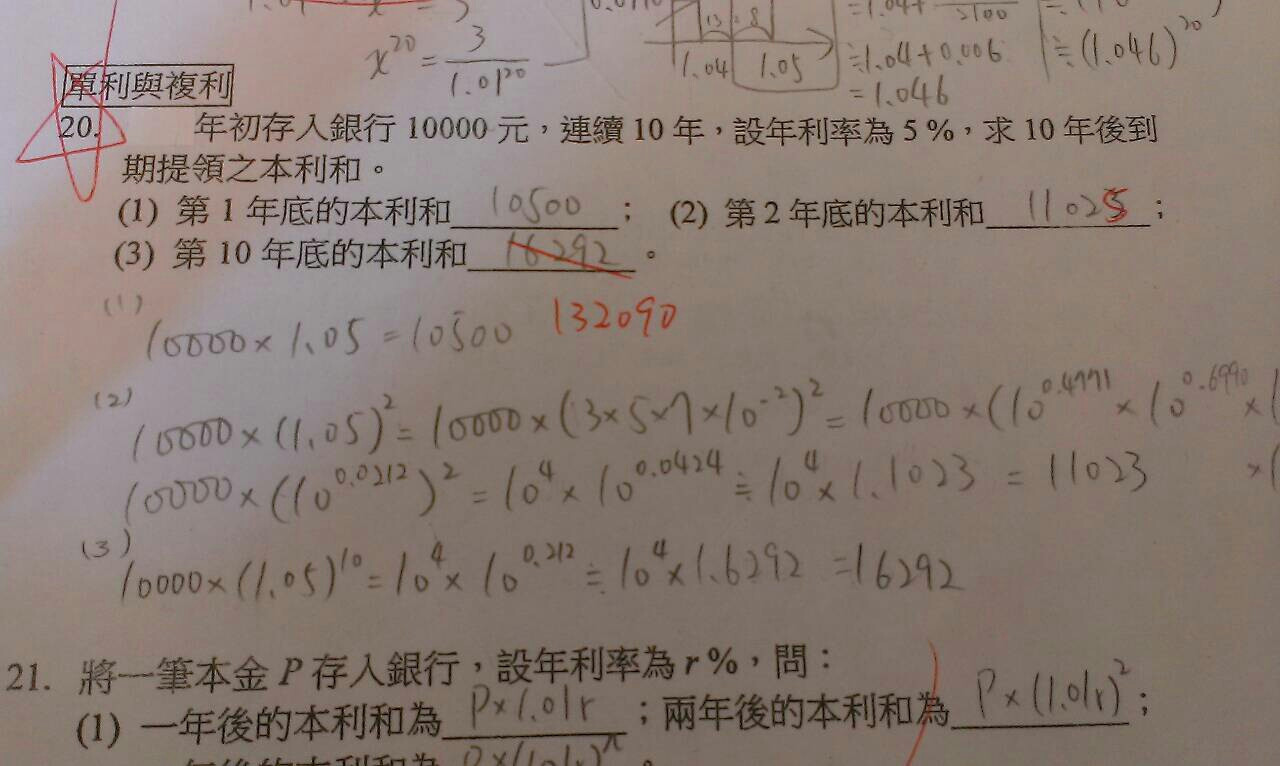 x²⁰ = 3/1.01²⁰
1.04 1.05
≒1.04+0.006
=1.046
≒(1.046)²⁰
單利與複利
20. 年初存入銀行 10000 元，連續 10 年，設年利率為 5 %，求 10 年後到
期提領之本利和。
(1) 第 1 年底的本利和 10500 ； (2) 第 2 年底的本利和 11025 ；
(3) 第 10 年底的本利和 16292 。
(1)
10000×1.05=10500 132090
(2)
10000×(1.05)²=10000×(3×5×7×10⁻²)²=10000×(10^0.4771×10^0.6990×
10000×(10^0.0212)²=10⁴×10^0.0424≒10⁴×1.1023=11023
(3)
10000×(1.05)¹⁰=10⁴×10^0.212≒10⁴×1.6292=16292
21. 將一筆本金 P 存入銀行，設年利率為 r %，問：
(1) 一年後的本利和為 P×1.01r ；兩年後的本利和為 P×(1.01r)² ；